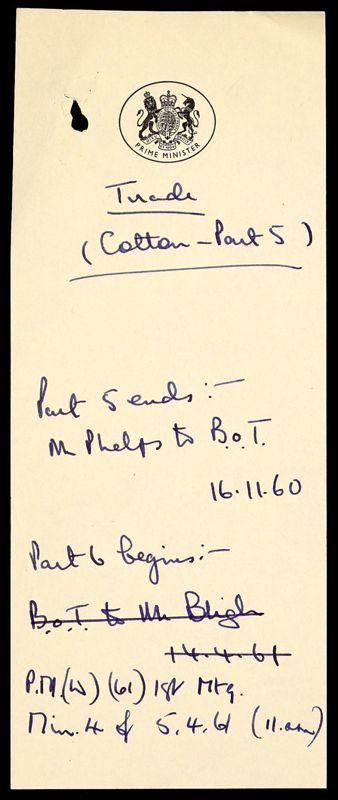 PRIME MINISTER
Trade
(Cotton - Part 5)
Part 5 ends :-
Mr Phelps to B.o.T.
16.11.60
Part 6 begins :-
B.o.T. to Mr Bligh
14.4.61
P.M.(W) (61) 1st Mtg.
Min. 4 of 5.4.61 (11.am)